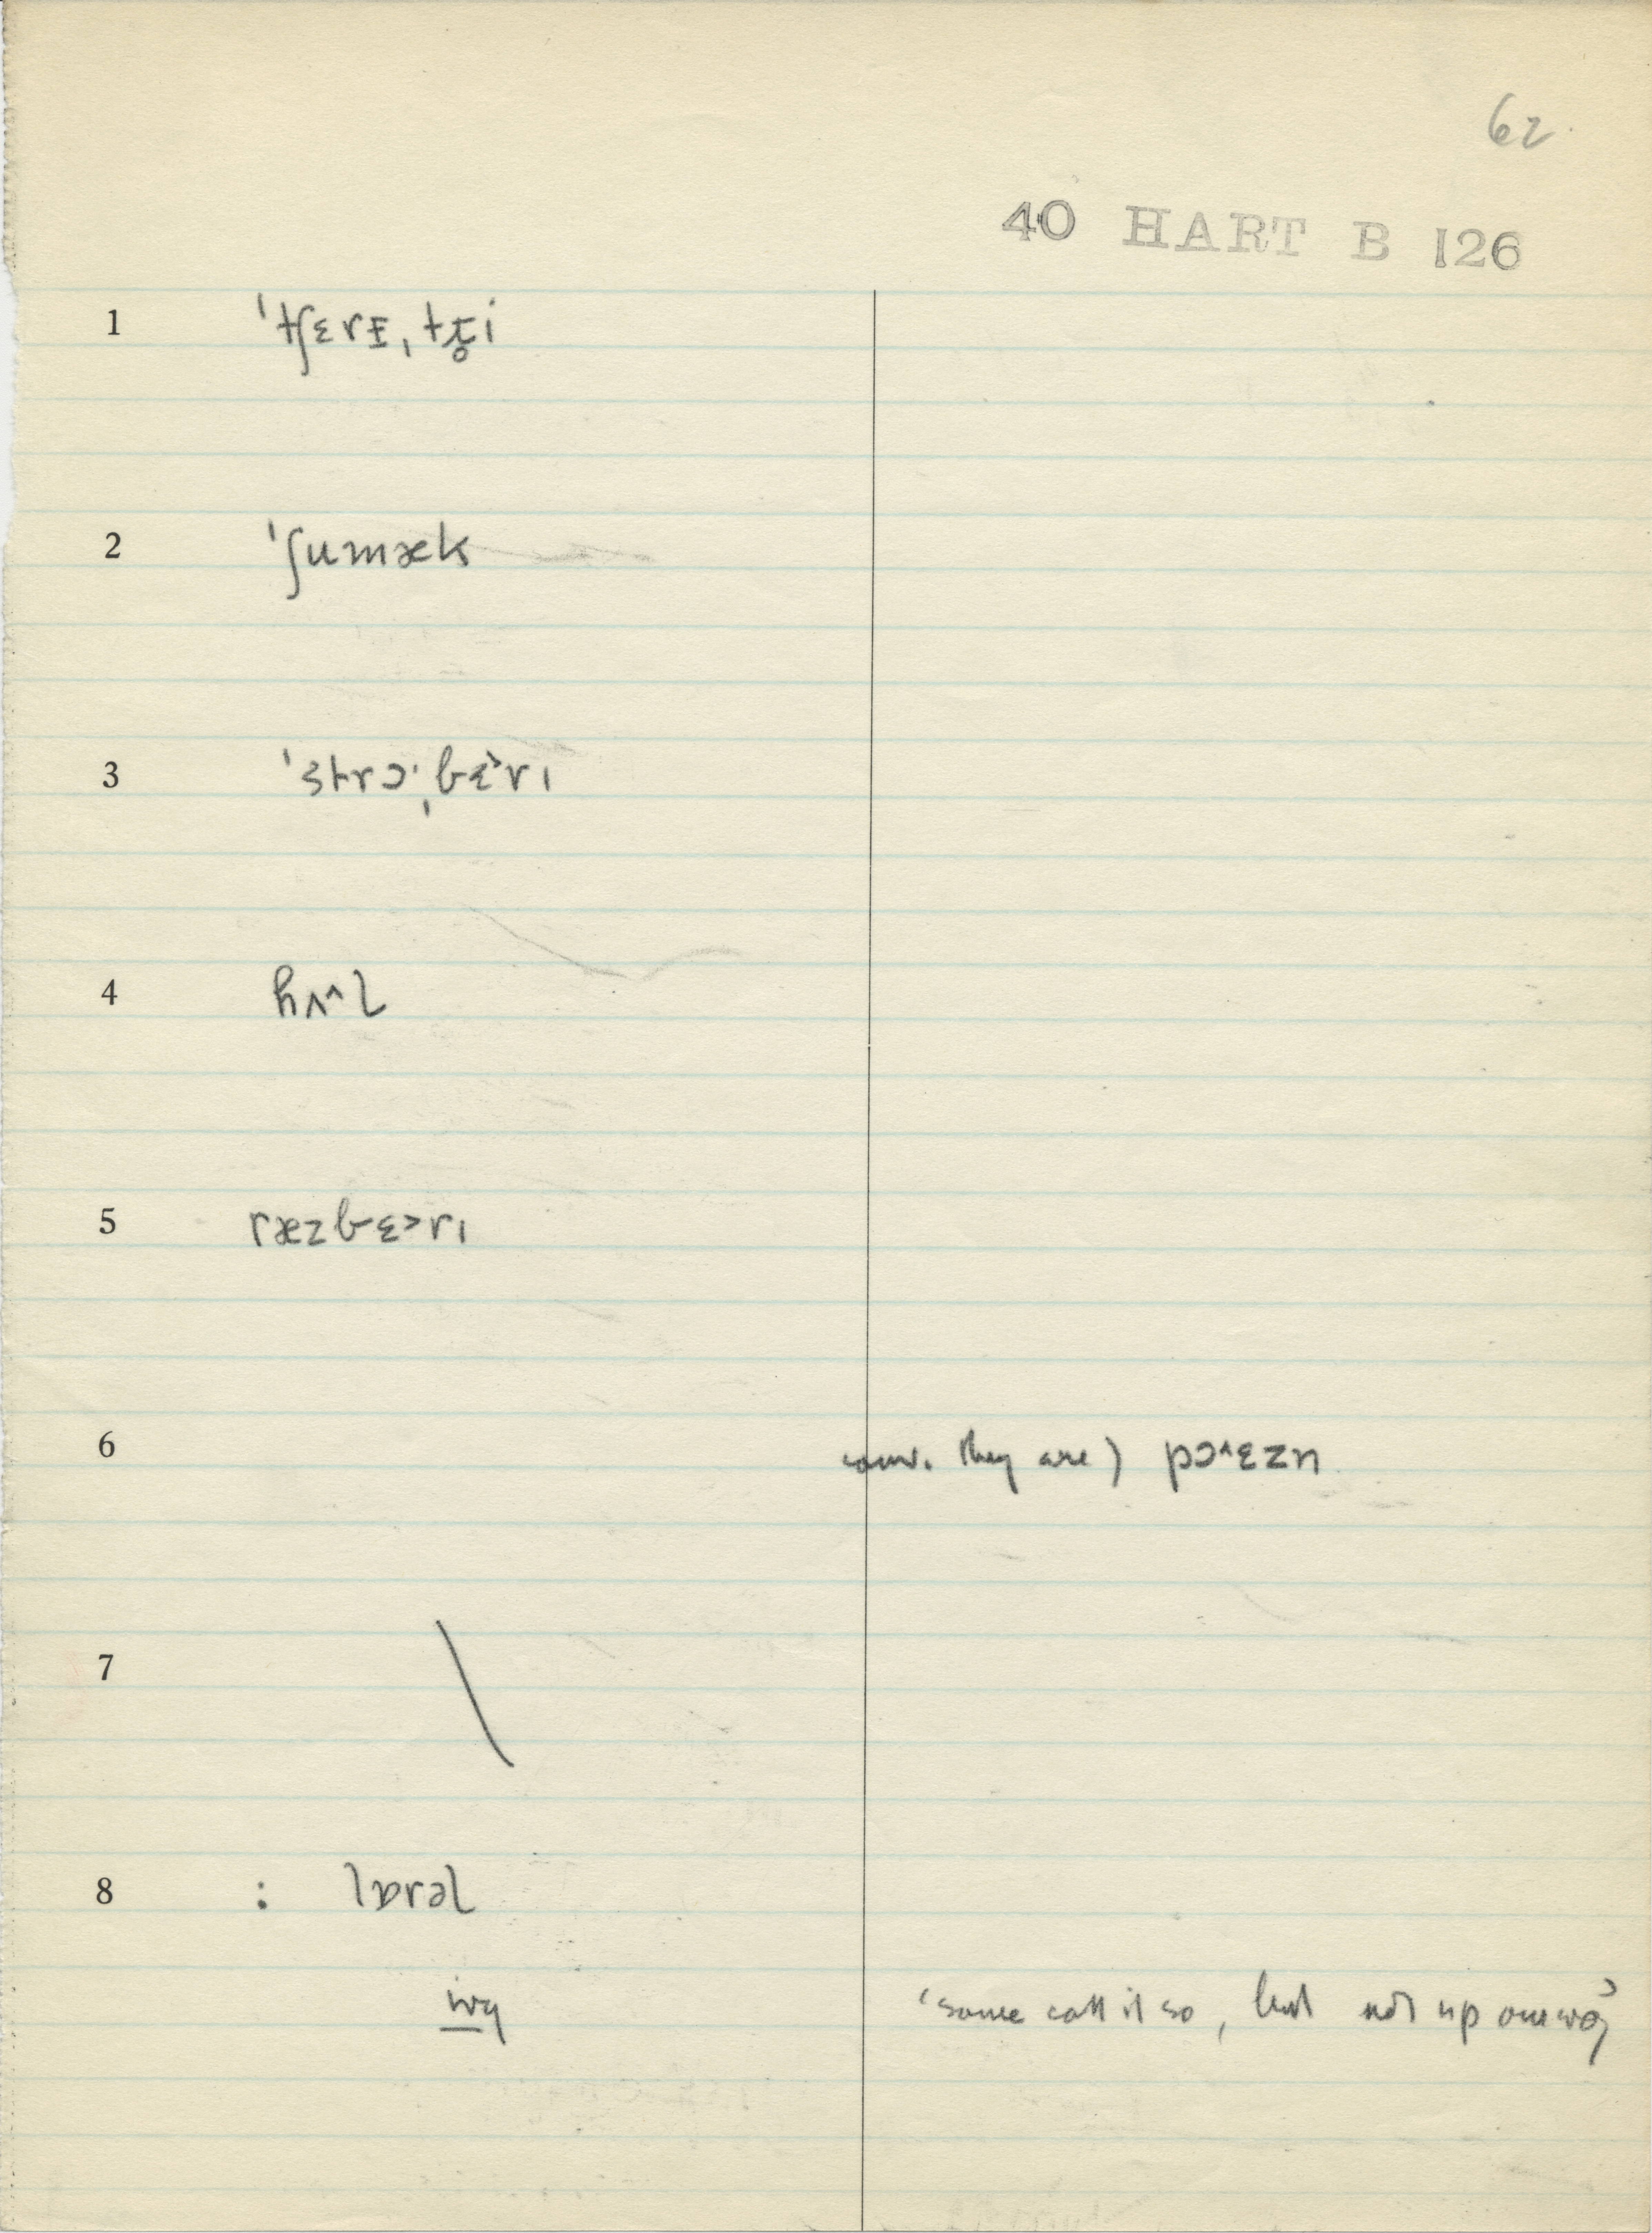 62.
40 HART B 126
1 ˈtʃɛrɪ̵ˌtɹ̥i
2 ˈʃumæk
3 ˈstrɔˑˌbɛ˃rɪ
4 hʌ^l
5 ræzbɛ˃rɪ
6 conv. they are) pɔ^ɛzn
7 \
8 : lɒrəl
'some call it so, but not up our way'